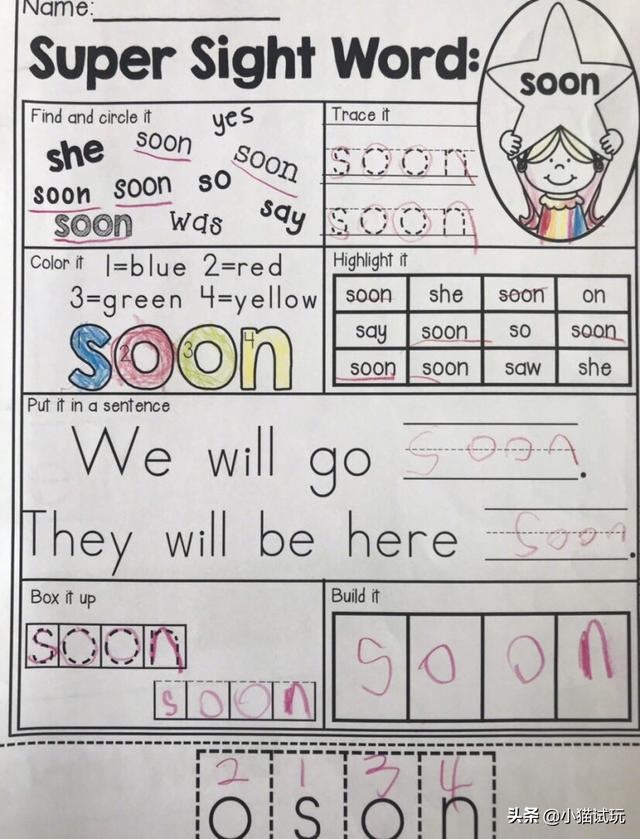 Name:
Super Sight Word:
soon
Find and circle it
yes
she
soon
soon
soon
soon
so
soon
was
say
Trace it
soon
soon
Color it 1=blue 2=red
3=green 4=yellow
soon
2 3 4
Highlight it
soon she soon on
say soon so soon
soon soon saw she
Put it in a sentence
We will go soon.
They will be here soon.
Box it up
soon
soon
Build it
soon
2 1 3 4
o s o n
头条 @小猫试玩